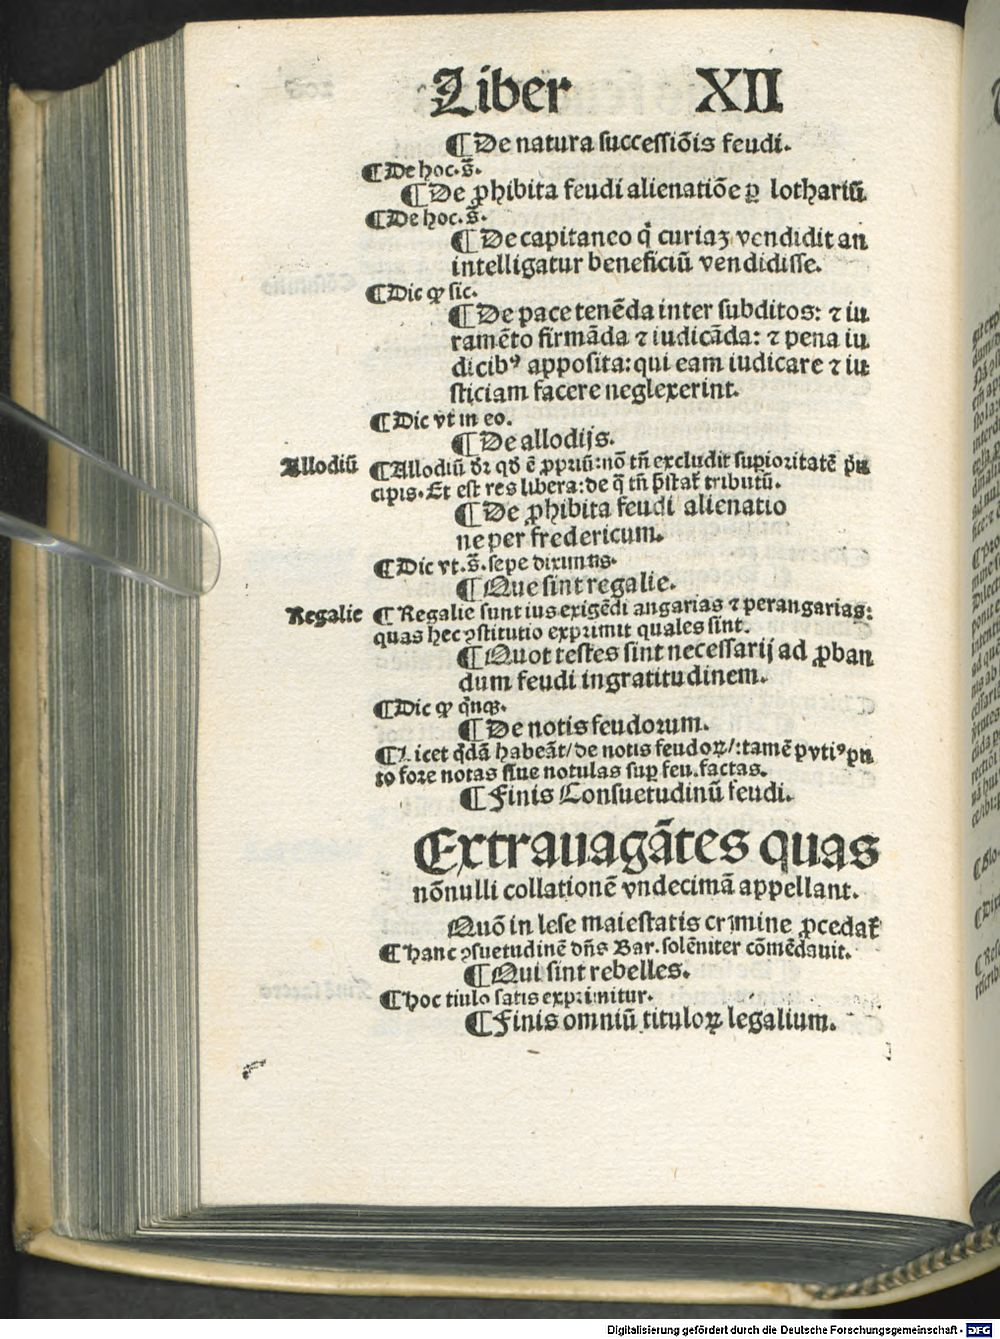 Liber XII
¶ De natura successiõis feudi.
¶ De hoc. s̃.
¶ De ꝓhibita feudi alienatiõe ꝑ lothariũ.
¶ De hoc. s̃.
¶ De capitaneo q̃ curiaꝫ vendidit an
intelligatur beneficiũ vendidisse.
¶ Dic ꝙ sic.
¶ De pace tenẽda inter subditos: ⁊ iu
ramẽto firmãda ⁊ iudicãda: ⁊ pena iu
dicibꝰ apposita: qui eam iudicare ⁊ iu
sticiam facere neglexerint.
¶ Dic vt in eo.
¶ De allodijs.
Allodiũ ¶ Allodiũ dr̃ qd̃ ẽ ꝓpriũ: nõ tñ excludit suꝑioritatẽ pñ
cipis. Et est res libera: de q̃ tñ p̃stat̃ tributũ.
¶ De ꝓhibita feudi alienatio
ne per fredericum.
¶ Dic vt. s̃. sepe diximus.
¶ Que sint regalie.
Regalie ¶ Regalie sunt ius exigẽdi angarias ⁊ perangarias:
quas hec ꝯstitutio exprimit quales sint.
¶ Quot testes sint necessarij ad ꝓban
dum feudi ingratitudinem.
¶ Dic ꝙ q̃nqꝫ.
¶ De notis feudorum.
¶ Licet qdã habeãt/ de notis feudoꝝ/: tamẽ pvtiꝰ pu
to fore notas siue notulas suꝑ feu. factas.
¶ Finis Consuetudinũ feudi.
Extrauagãtes quas
nõnulli collationẽ vndecimã appellant.
Quõ in lese maiestatis crimine ꝓcedat̃
¶ hanc ꝯsuetudinẽ dñs Bar. solẽniter cõmẽdauit.
¶ Qui sint rebelles.
¶ hoc titulo satis exprimitur.
¶ Finis omniũ tituloꝝ legalium.
Digitalisierung gefördert durch die Deutsche Forschungsgemeinschaft - DFG